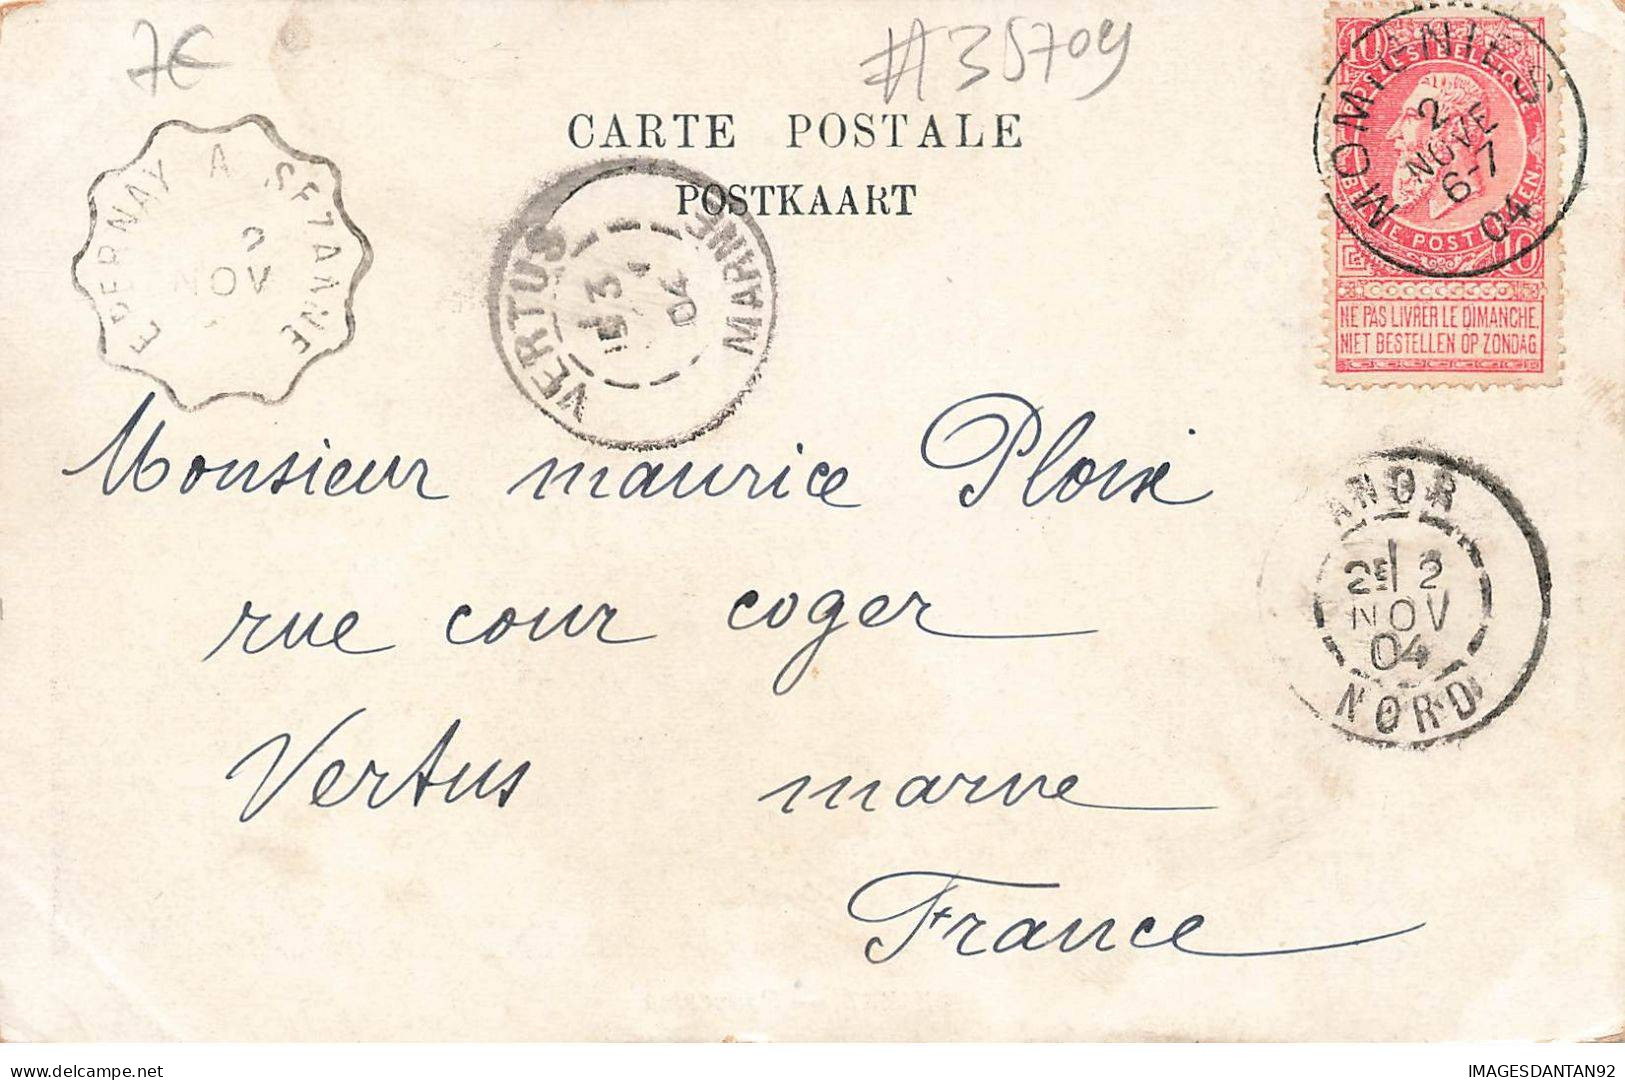 7€
#35709
CARTE POSTALE
POSTKAART
EPERNAY A SEZANNE
2
NOV
VERTUS
MARNE
3
04
MOMIGNIES
2
NOVE
6-7
04
10
10
NE PAS LIVRER LE DIMANCHE.
NIET BESTELLEN OP ZONDAG.
Monsieur maurice Ploix
rue cour coger
Vertus marne
France
ANOR
2E 2
NOV
04
NORD
IMAGESDANTAN92